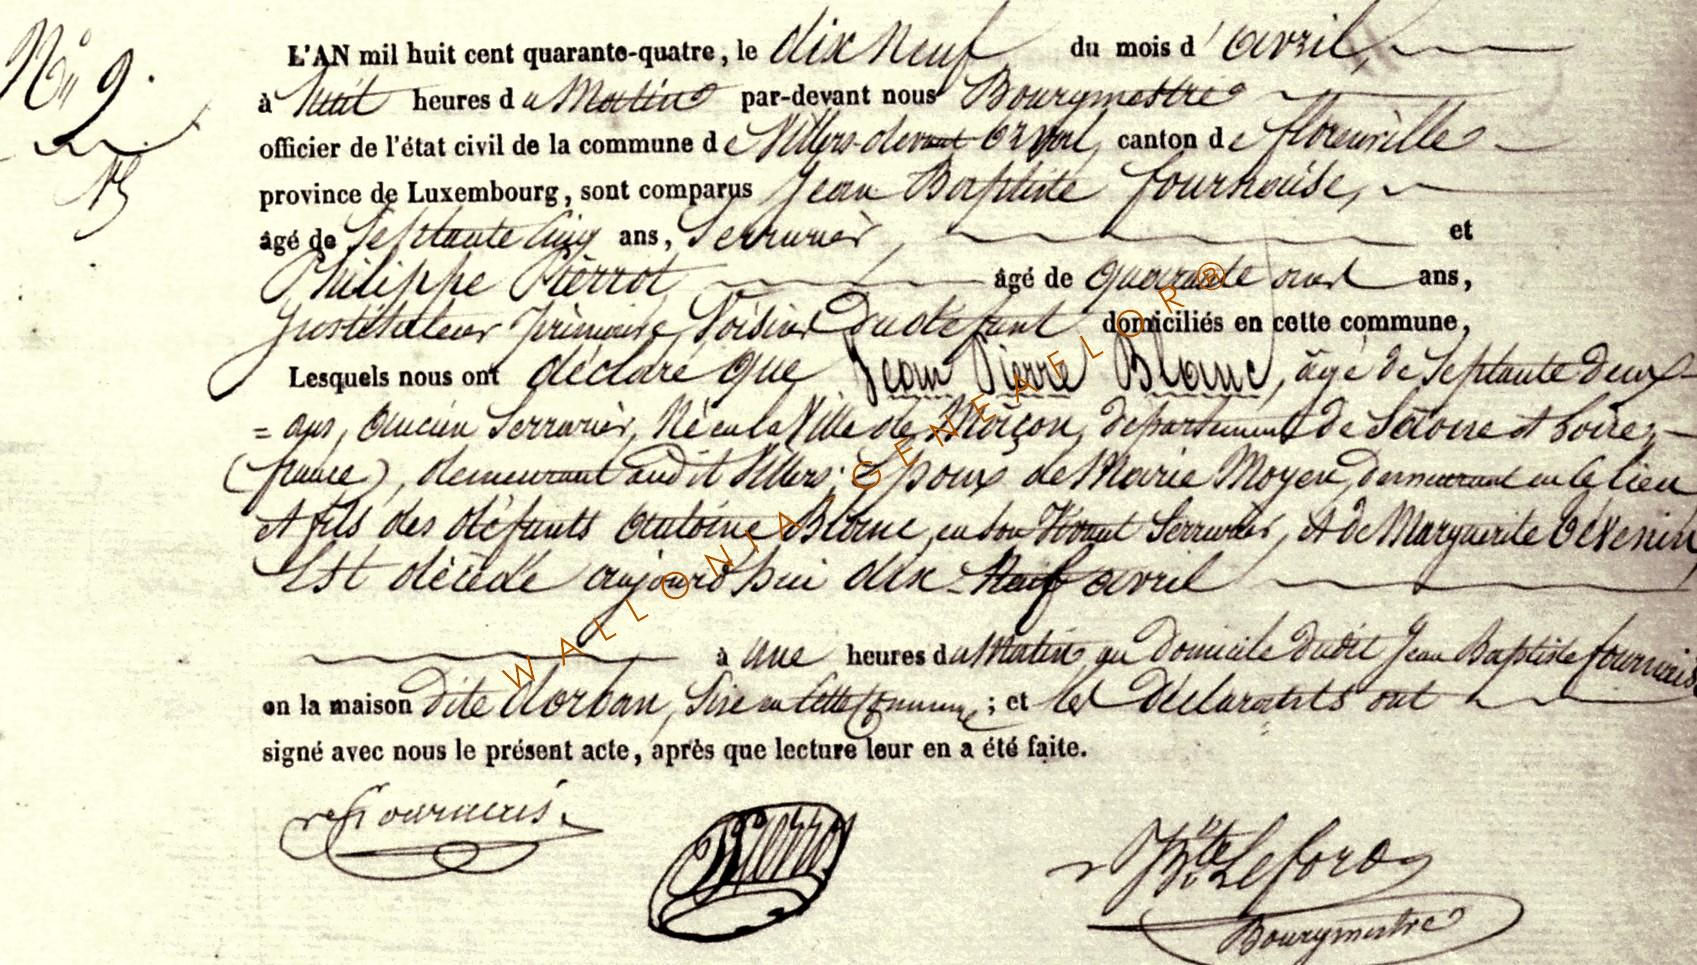 N° 9.
L'AN mil huit cent quarante-quatre, le dix neuf du mois d'avril,
à huit heures du Matin par-devant nous Bourgmestre
officier de l'état civil de la commune de Villers-devant-Orval, canton de florenville
province de Luxembourg, sont comparus Jean Baptiste fournaise,
âgé de Septante Cinq ans, Serrurier, et
Philippe Pierrot âgé de quarante ans,
Instituteur primaire, Voisins du défunt domiciliés en cette commune,
Lesquels nous ont déclaré que Jean Pierre Blanc, âgé de Septante deux
= ans, ancien Serrurier, Né en la Ville de Maçon, département de Saone et Loire,
(france), demeurant audit Villers; Epoux de Marie Moyen, demeurant en ce lieu
et fils des défunts Antoine Blanc, en son vivant Serrurier, et de Marguerite
Est décédé aujourd'hui dix-Neuf avril
à une heures du Matin au Domicile dudit Jean Baptiste fournaise
en la maison dite dorban, Sise en cette Commune; et les Déclarants ont
signé avec nous le présent acte, après que lecture leur en a été faite.
Fournais
Pierrot
JBte Leforo
Bourgmestre
WALLONIA GENEAFLOR®